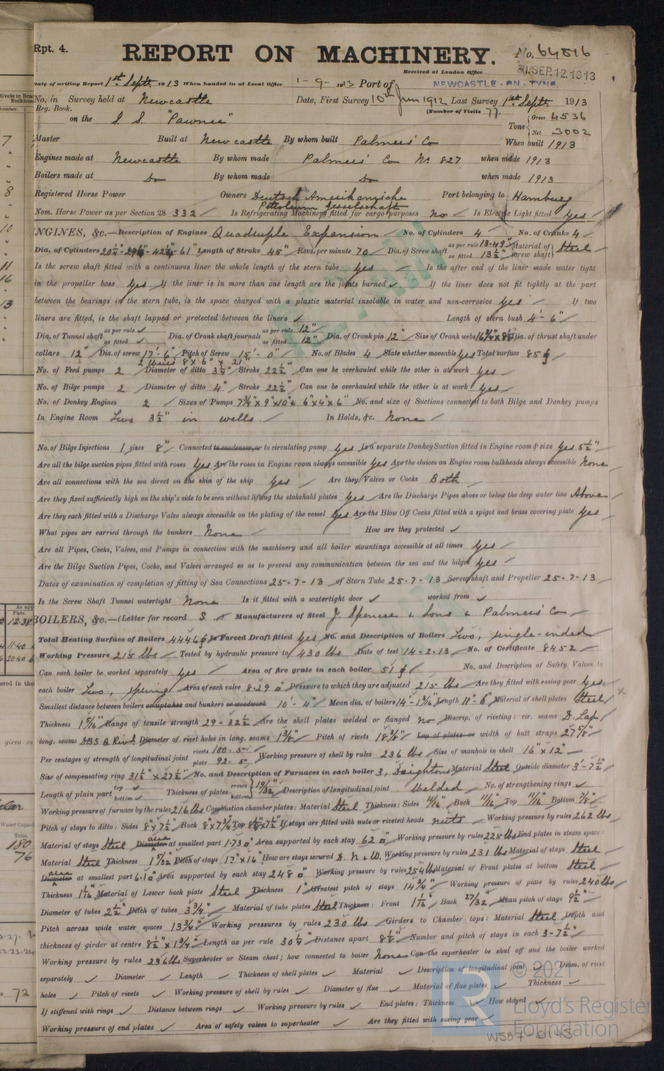 Rpt. 4.
REPORT ON MACHINERY.
No. 64816
Received at London Office
FRI. SEP. 12. 1913
Date of writing Report 1st Septr. 1913 When handed in at Local Office 1-9-1913 Port of NEWCASTLE-ON-TYNE
No. in Survey held at Newcastle Date, First Survey 10th Jun 1912 Last Survey 1st Septr 1913
Reg. Book. (Number of Visits 77
on the S.S. "Pawnee" Tons Gross 4536 Net 3002
Master Built at Newcastle By whom built Palmers Co When built 1913
Engines made at Newcastle By whom made Palmers Co No 827 when made 1913
Boilers made at Do By whom made Do when made 1913
Registered Horse Power Owners Deutsch Amerikanische Petroleum Gesellschaft Port belonging to Hamburg
Nom. Horse Power as per Section 28 332 Is Refrigerating Machinery fitted for cargo purposes No Is Electric Light fitted Yes
ENGINES, &c.—Description of Engines Quadruple Expansion No. of Cylinders 4 No. of Cranks 4
Dia. of Cylinders Length of Stroke 45" Revs. per minute 70 Dia. of Screw shaft as per rule 13.49 as fitted 13½ Material of screw shaft Steel
Is the screw shaft fitted with a continuous liner the whole length of the stern tube Yes Is the after end of the liner made water tight
in the propeller boss Yes If the liner is in more than one length are the joints burned ✓ If the liner does not fit tightly at the part
between the bearings in the stern tube, is the space charged with a plastic material insoluble in water and non-corrosive Yes If two
liners are fitted, is the shaft lapped or protected between the liners ✓ Length of stern bush 4'-6"
Dia. of Tunnel shaft as per rule ✓ as fitted ✓ Dia. of Crank shaft journals as per rule 12" as fitted 12" Dia. of Crank pin 12" Size of Crank webs Dia. of thrust shaft under
collars 12" Dia. of screw 17'-6" Pitch of Screw 18'-0" No. of Blades 4 State whether moveable Yes Total surface 85
No. of Feed pumps 2 Diameter of ditto 3½" Stroke 22½" Can one be overhauled while the other is at work Yes
No. of Bilge pumps 2 Diameter of ditto 4" Stroke 22½" Can one be overhauled while the other is at work Yes
No. of Donkey Engines 2 Sizes of Pumps No. and size of Suctions connected to both Bilge and Donkey pumps
In Engine Room Two 3½" in wells In Holds, &c. None
No. of Bilge Injections 1 sizes 8" Connected to condenser, or to circulating pump Yes Is a separate Donkey Suction fitted in Engine room & size Yes 5½"
Are all the bilge suction pipes fitted with roses Yes Are the roses in Engine room always accessible Yes Are the sluices on Engine room bulkheads always accessible None
Are all connections with the sea direct on the skin of the ship Yes Are they Valves or Cocks Both
Are they fixed sufficiently high on the ship's side to be seen without lifting the stokehold plates Yes Are the Discharge Pipes above or below the deep water line Above
Are they each fitted with a Discharge Valve always accessible on the plating of the vessel Yes Are the Blow Off Cocks fitted with a spigot and brass covering plate Yes
What pipes are carried through the bunkers None How are they protected ✓
Are all Pipes, Cocks, Valves, and Pumps in connection with the machinery and all boiler mountings accessible at all times Yes
Are the Bilge Suction Pipes, Cocks, and Valves arranged so as to prevent any communication between the sea and the bilges Yes
Dates of examination of completion of fitting of Sea Connections 25-7-13 of Stern Tube 25-7-13 Screw shaft and Propeller 25-7-13
Is the Screw Shaft Tunnel watertight None Is it fitted with a watertight door ✓ worked from ✓
BOILERS, &c.—(Letter for record S) Manufacturers of Steel J Spencer & Sons & Palmers Co
Total Heating Surface of Boilers Is Forced Draft fitted Yes No. and Description of Boilers Two, single-ended
Working Pressure 215 lbs Tested by hydraulic pressure to 430 lbs Date of test 14-2-13 No. of Certificate 8452
Can each boiler be worked separately Yes Area of fire grate in each boiler 51 No. and Description of Safety Valves to
each boiler Two, spring Area of each valve 8.29 Pressure to which they are adjusted 215 lbs Are they fitted with easing gear Yes
Smallest distance between boilers or uptakes and bunkers or woodwork 10'-4" Mean dia. of boilers Length 11'-6" Material of shell plates Steel
Thickness Range of tensile strength Are the shell plates welded or flanged No Descrip. of riveting: cir. seams D. Lap
long. seams Diameter of rivet holes in long. seams Pitch of rivets Lap of plates or width of butt straps
Per centages of strength of longitudinal joint rivets 100.5 plate 92.5 Working pressure of shell by rules 236 lbs Size of manhole in shell 16" x 12"
Size of compensating ring No. and Description of Furnaces in each boiler 3, Deighton Material Steel Outside diameter 3'-7½"
Length of plain part top bottom Thickness of plates Description of longitudinal joint Welded No. of strengthening rings ✓
Working pressure of furnace by the rules 216 lbs Combustion chamber plates: Material Steel Thickness: Sides Back Top Bottom
Pitch of stays to ditto: Sides Back Top If stays are fitted with nuts or riveted heads nuts Working pressure by rules 262 lbs
Material of stays Steel area at smallest part 1.73 Area supported by each stay 62 Working pressure by rules 225 lbs End plates in steam space:
Material Steel Thickness Pitch of stays 17" x 16" How are stays secured D. N & W. Working pressure by rules 231 lbs Material of stays Steel
area at smallest part Area supported by each stay 248 Working pressure by rules 254 lbs Material of Front plates at bottom Steel
Thickness Material of Lower back plate Steel Thickness 1" Greatest pitch of stays Working pressure of plate by rules 240 lbs
Diameter of tubes 2½" Pitch of tubes 3¾" Material of tube plates Steel Thickness: Front Back 27/32 Mean pitch of stays
Pitch across wide water spaces 13¾" Working pressures by rules 230 lbs Girders to Chamber tops: Material Steel Depth and
thickness of girder at centre Length as per rule Distance apart Number and pitch of stays in each 3-7½"
Working pressure by rules 236 lbs Superheater or Steam chest; how connected to boiler None Can the superheater be shut off and the boiler worked
separately ✓ Diameter ✓ Length ✓ Thickness of shell plates ✓ Material ✓ Description of longitudinal joint ✓ Diam. of rivet
holes ✓ Pitch of rivets ✓ Working pressure of shell by rules ✓ Diameter of flue ✓ Material of flue plates ✓ Thickness ✓
If stiffened with rings ✓ Distance between rings ✓ Working pressure by rules ✓ End plates: Thickness ✓ How stayed ✓
Working pressure of end plates ✓ Area of safety valves to superheater ✓ Are they fitted with easing gear ✓
© 2021
Lloyd's Register
Foundation